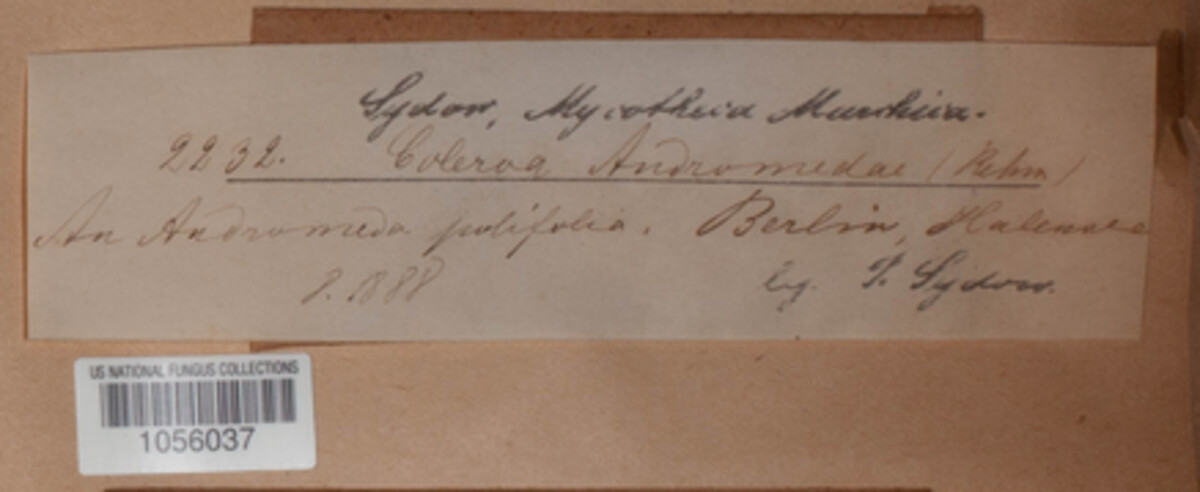 Sydow, Mycotheca Marchica.
2232. Coleroa Andromedae (Rehm)
An Andromeda polifolia. Berlin, Halensee
8. 1888 leg. P. Sydow.
US NATIONAL FUNGUS COLLECTIONS
1056037